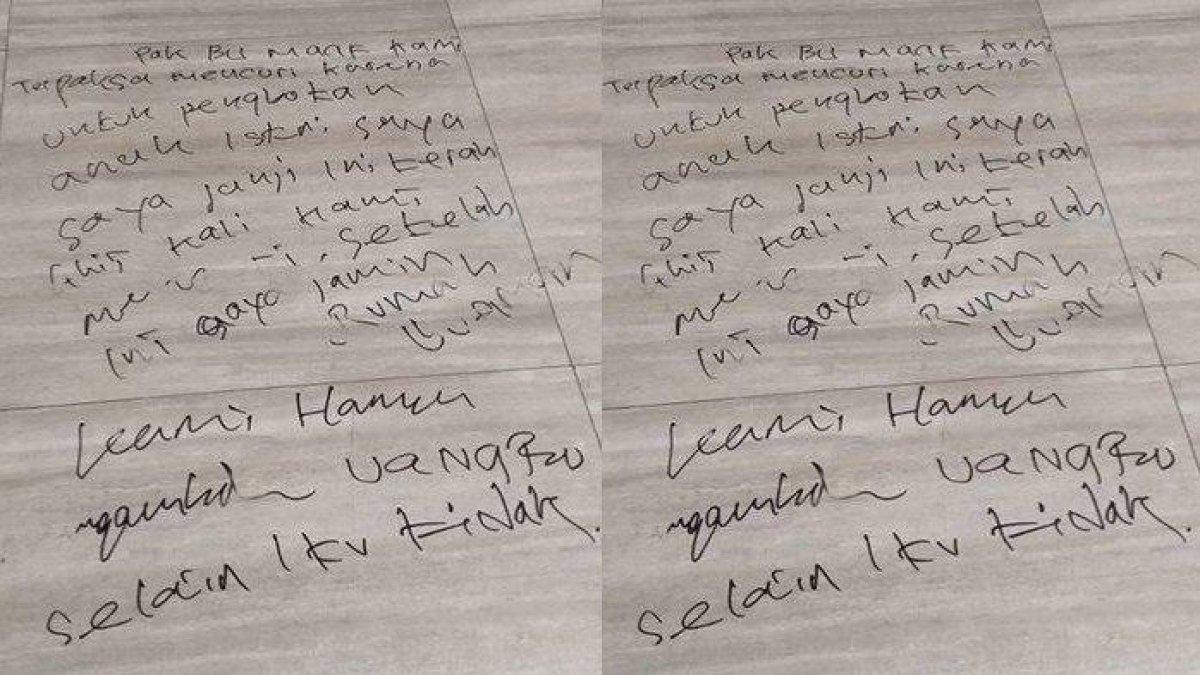 Pak Bu Maaf Kami
Terpaksa mencuri karena
untuk pengbotan
anak Istri saya
saya janji ini terah
khir kali kami
setelah
ini saya jamin
Rumah
Kami Hanya
ngambil UANG
selain Itu tidak.
Pak Bu Maaf Kami
Terpaksa mencuri karena
untuk pengbotan
anak Istri saya
saya janji ini terah
khir kali kami
setelah
ini saya jamin
Rumah
Kami Hanya
ngambil UANG
selain Itu tidak.